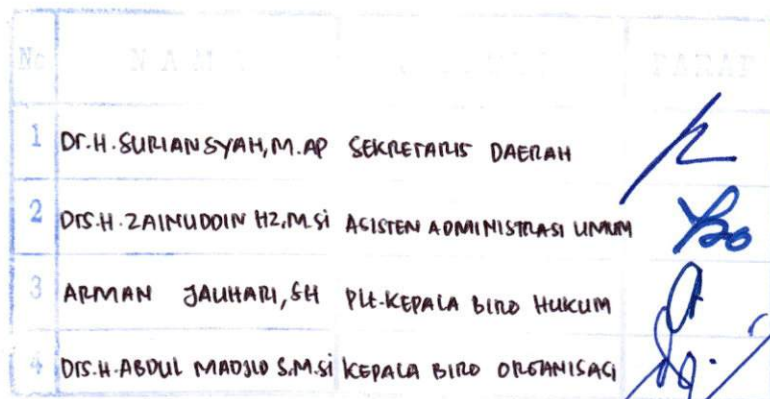 No N A M A PARAF
1 Dr.H.SURIANSYAH,M.AP SEKRETARIS DAERAH
2 Drs.H.ZAINUDDIN HZ,M.Si ASISTEN ADMINISTRASI UMUM
3 ARMAN JAUHARI,SH Plt.KEPALA BIRO HUKUM
4 Drs.H.ABDUL MADJID S.M.Si KEPALA BIRO ORGANISASI